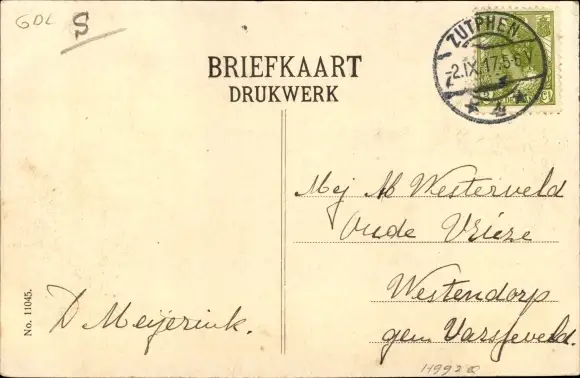 GDL S
ZUTPHEN
-2.IX.17.5-6V
BRIEFKAART
DRUKWERK
Mej M Westerveld
Oude Vrieze
Westendorp
gem Varsseveld.
D Meijerink.
No. 11045.